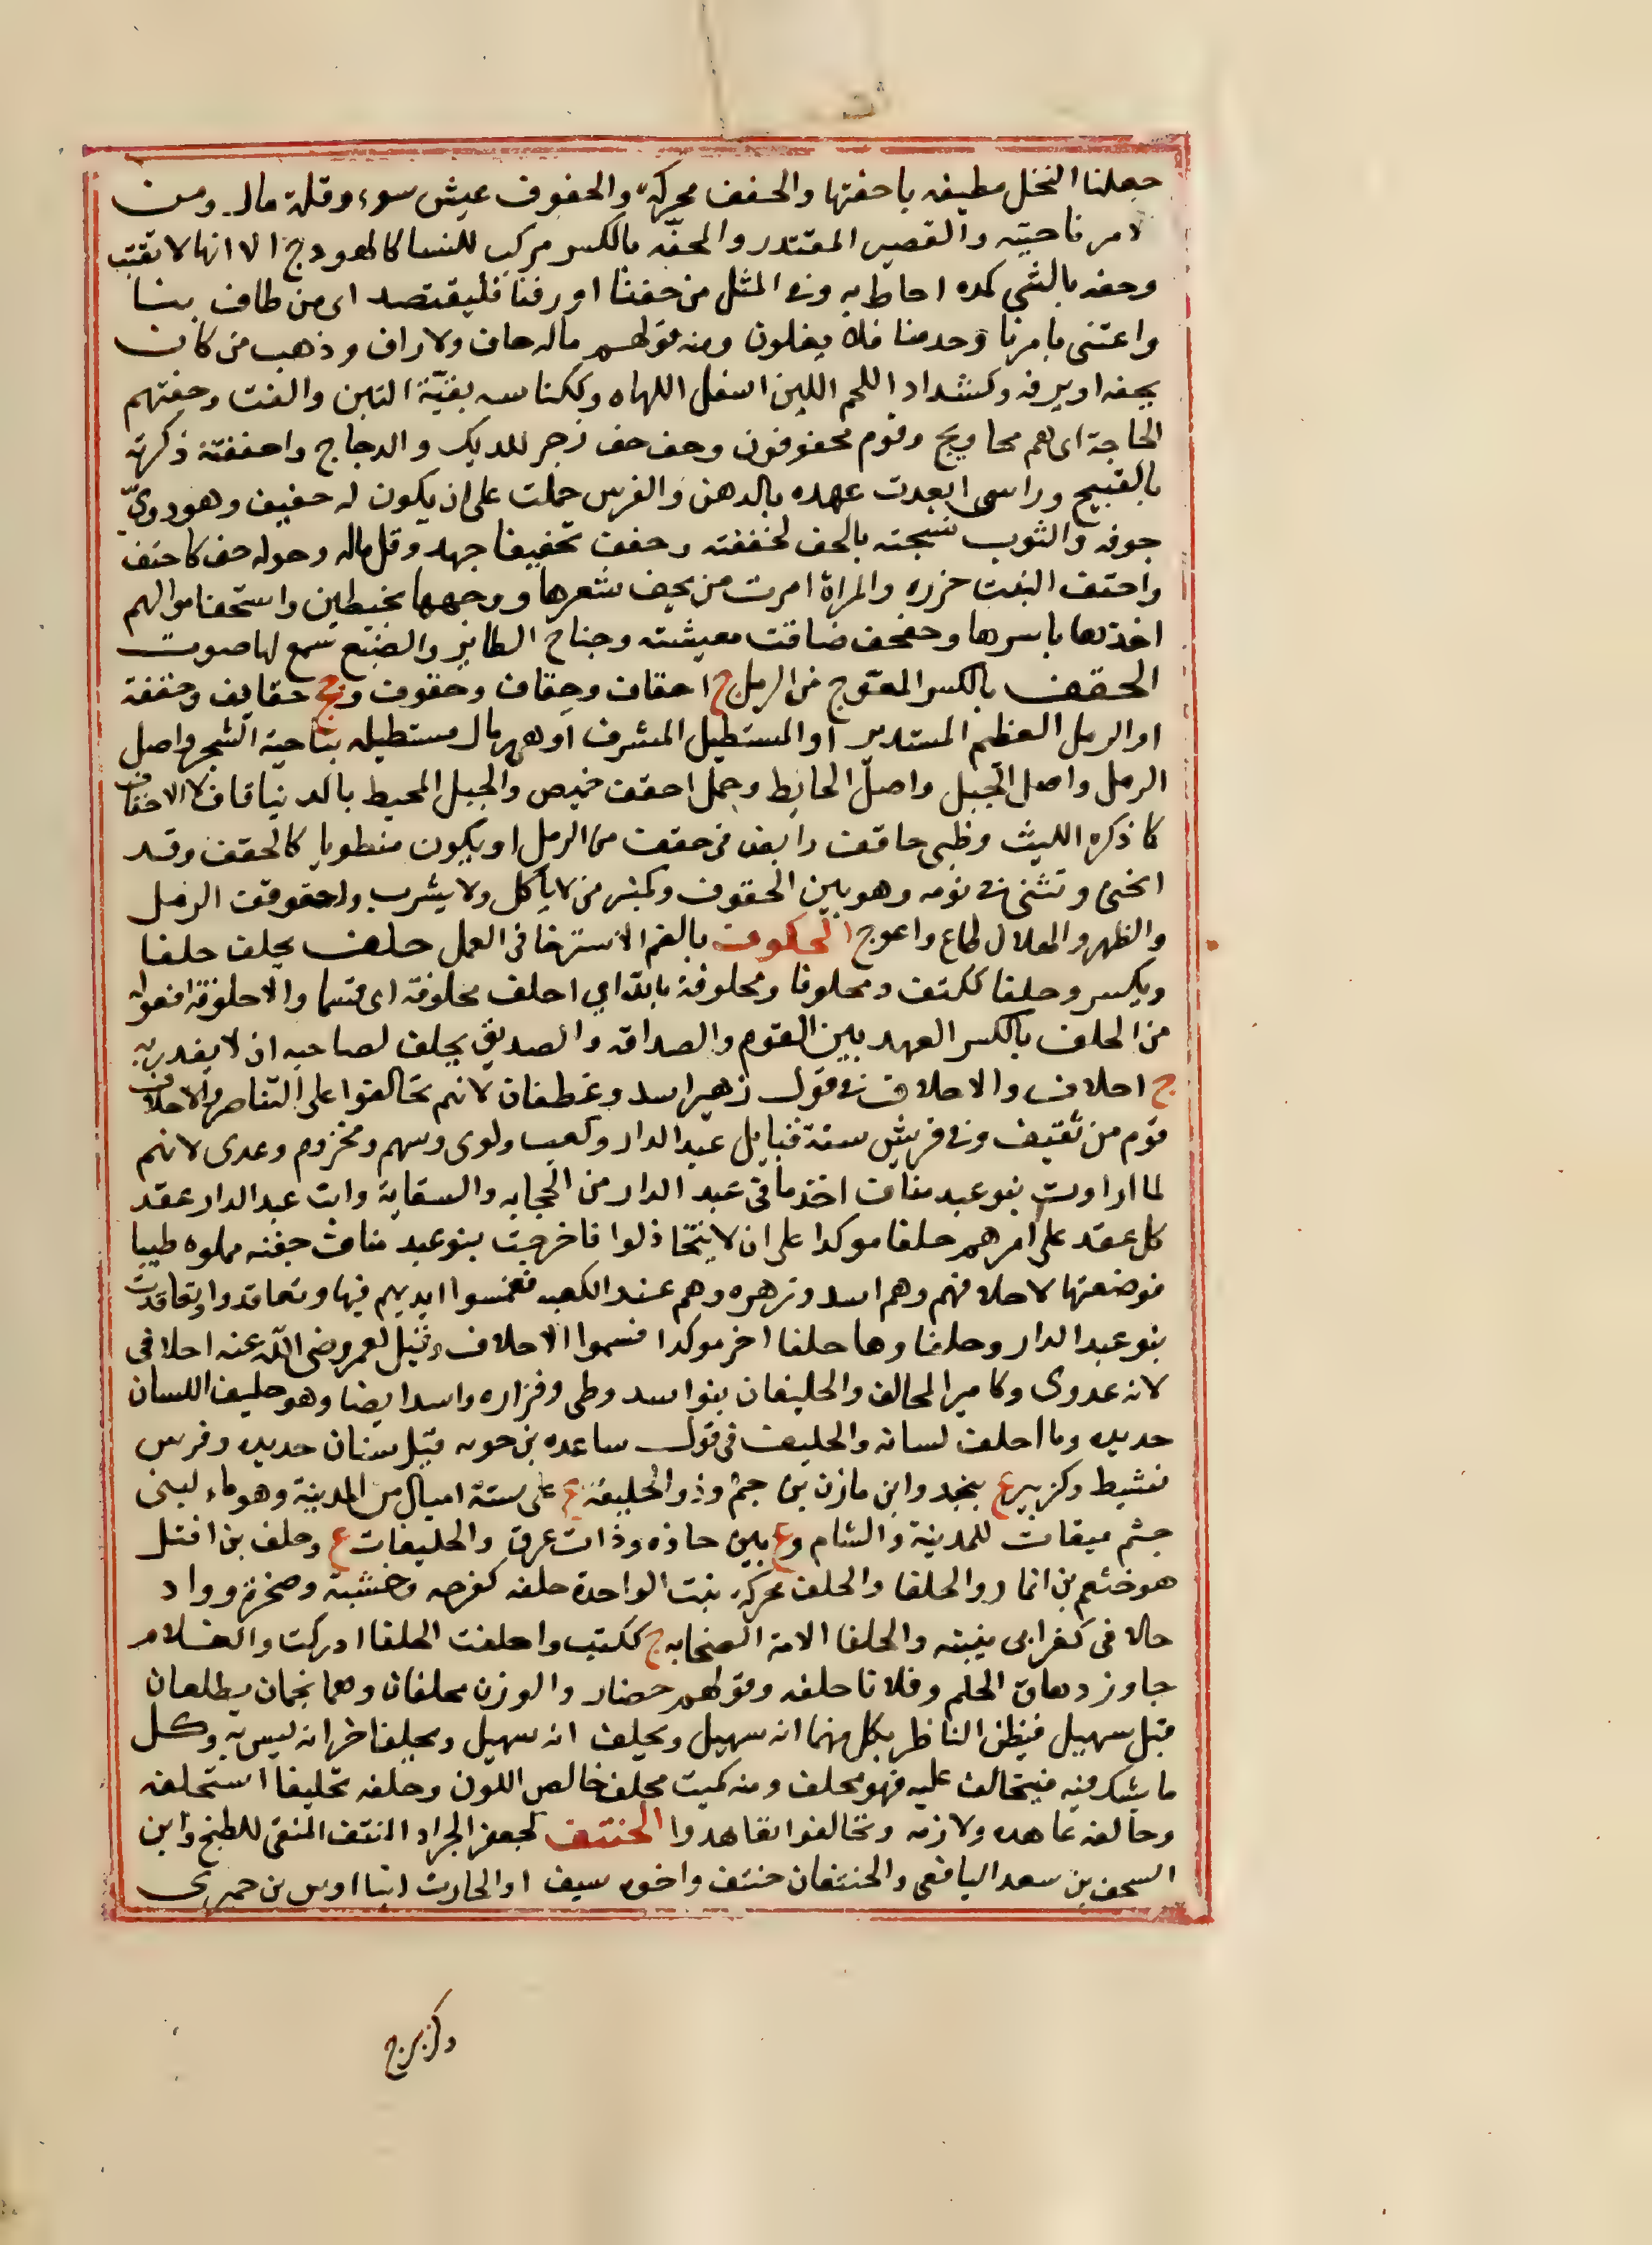 جعلنا النخل مطيفه باحفتها والحفف محركة والحفوف عيش سوء وقلة مال ومن
لامر ناحيته والقصير المقتدر والمحفه بالكسر مركب للنسا كالهودج الا انها لا تقبب
وحفه بالشي كمده احاط به وفي المثل من حفنا او رفنا فليقتصد اى من طاف بنا
واعتنى بامرنا وخدمنا فلا يغلون ومنه قولهم ماله حاف ولا راف وذهب من كان
يحفه او يرفه وكشداد اللحم اللين اسفل اللهاه وككناسه بقية التبن والقت وحفتهم
الحاجة اى هم محاويج وقوم محفوفون وحف حف زجر للديك والدجاج واحففته ذكرته
بالقبيح وراسى ابعدت عهده بالدهن والفرس حملت على ان يكون له حفيف وهو دوىّ
جوفه والثوب نسجته بالحف كحففته وحفف تحفيفا جهد وقل ماله وحوله حف كاحتف
واحتف النبت حزره والمراة امرت من يحف شعرها ووجهها بخيطين واستحف اموالهم
اخذها باسرها وحفحف ضاقت معيشته وجناح الطاير والضبع سمع لها صوت
الحقف بالكسر المعوّج من الرمل ج احقاف وحِقاف وحقوف وجج حقايف وحقفة
او الرمل العظيم المستدير او المستطيل المشرف او هى رمال مستطيله بناحية الشجر واصل
الرمل واصل الجبل واصل الحايط وجمل احقف خميص والجبل المحيط بالدنيا قاف لا الاحقاف
كما ذكره الليث وظبى حاقف رابض فى حقف من الرمل او يكون منطويا كالحقف وقد
انحنى وتثنى فى نومه وهو بين الحقوف وكمنبر من لا ياكل ولا يشرب واحقوقف الرمل
والظهر والهلال طال واعوج الحكوف بالضم الاسترخا فى العمل حلف يحلف حلفا
ويكسر وحلفا ككتف ومحلوفا ومحلوفة بالله اي احلف محلوفة اى قسما والاحلوفة افعوله
من الحلف بالكسر العهد بين القوم والصداقه والصديق يحلف لصاحبه ان لا يغدر به
ج احلاف والاحلاف فى قول زهير اسد وغطفان لانهم تحالفوا على التناصر والاحلاف
قوم من ثقيف وفى قريش ستة قبايل عبد الدار وكعب ولوى وسهم ومخزوم وعدى لانهم
لما ارادت بنو عبد مناف اخذ ما فى عبد الدار من الحجابه والسقاية وابت عبد الدار عقد
كل عقد على امرهم حلفا موكدا على ان لا يتخاذلوا فاخرجت بنو عبد مناف جفنه مملوه طيبا
فوضعتها لاحلافهم وهم اسد وزهره وهم عند الكعبه فغمسوا ايديهم فيها وتعاقدوا وتعاقدت
بنو عبد الدار وحلفاوها حلفا اخر موكدا فسموا الاحلاف وقيل لعمر رضى الله عنه احلافى
لانه عدوى وكامير المحالف والحليفان بنو اسد وطى وفزاره واسد ايضا وهو حليف اللسان
حديده وما احلف لسانه والحليف فى قول ساعده بن جويه قيل سنان حديد وفرس
نشيط وكزبير ع بنجد وابن مازن بن جشم وذو الحليفة ع على ستة اميال من المدينة وهو ماء لبنى
جشم ميقات للمدينة والشام وع بين حاذه وذات عرق والحليفات ع وحلف بن افتل
هو خثعم بن انمار والحلفا والحلف محركه نبت الواحدة حلفه كفرحه وخشبة وصحرة وواد
حلافى كغرابى ينبته والحلفا الامة الصخابه ج ككتب واحلفت الحلفا ادركت والغلام
جاوز رهاق الحلم وفلانا حلفه وقولهم حضار والوزن محلفان وهما نجمان يطلعان
قبل سهيل فيظن الناظر بكل منهما انه سهيل ويحلف انه سهيل ويحلف اخر انه ليس به وكل
ما يشك فيه فيتحالف عليه فهو محلف ومنه كميت محلف خالص اللون وحلفه تحليفا استحلفه
وحالفه عاهده ولازمه وتحالفوا تعاهدوا الحنتف كجعفر الجراد المنتف المنقى للطبخ وابن
السجف بن سعد اليافعى والحنتفان حنتف واخوه سيف او الحارث ابنا اوس بن حميرى
وكزبرج